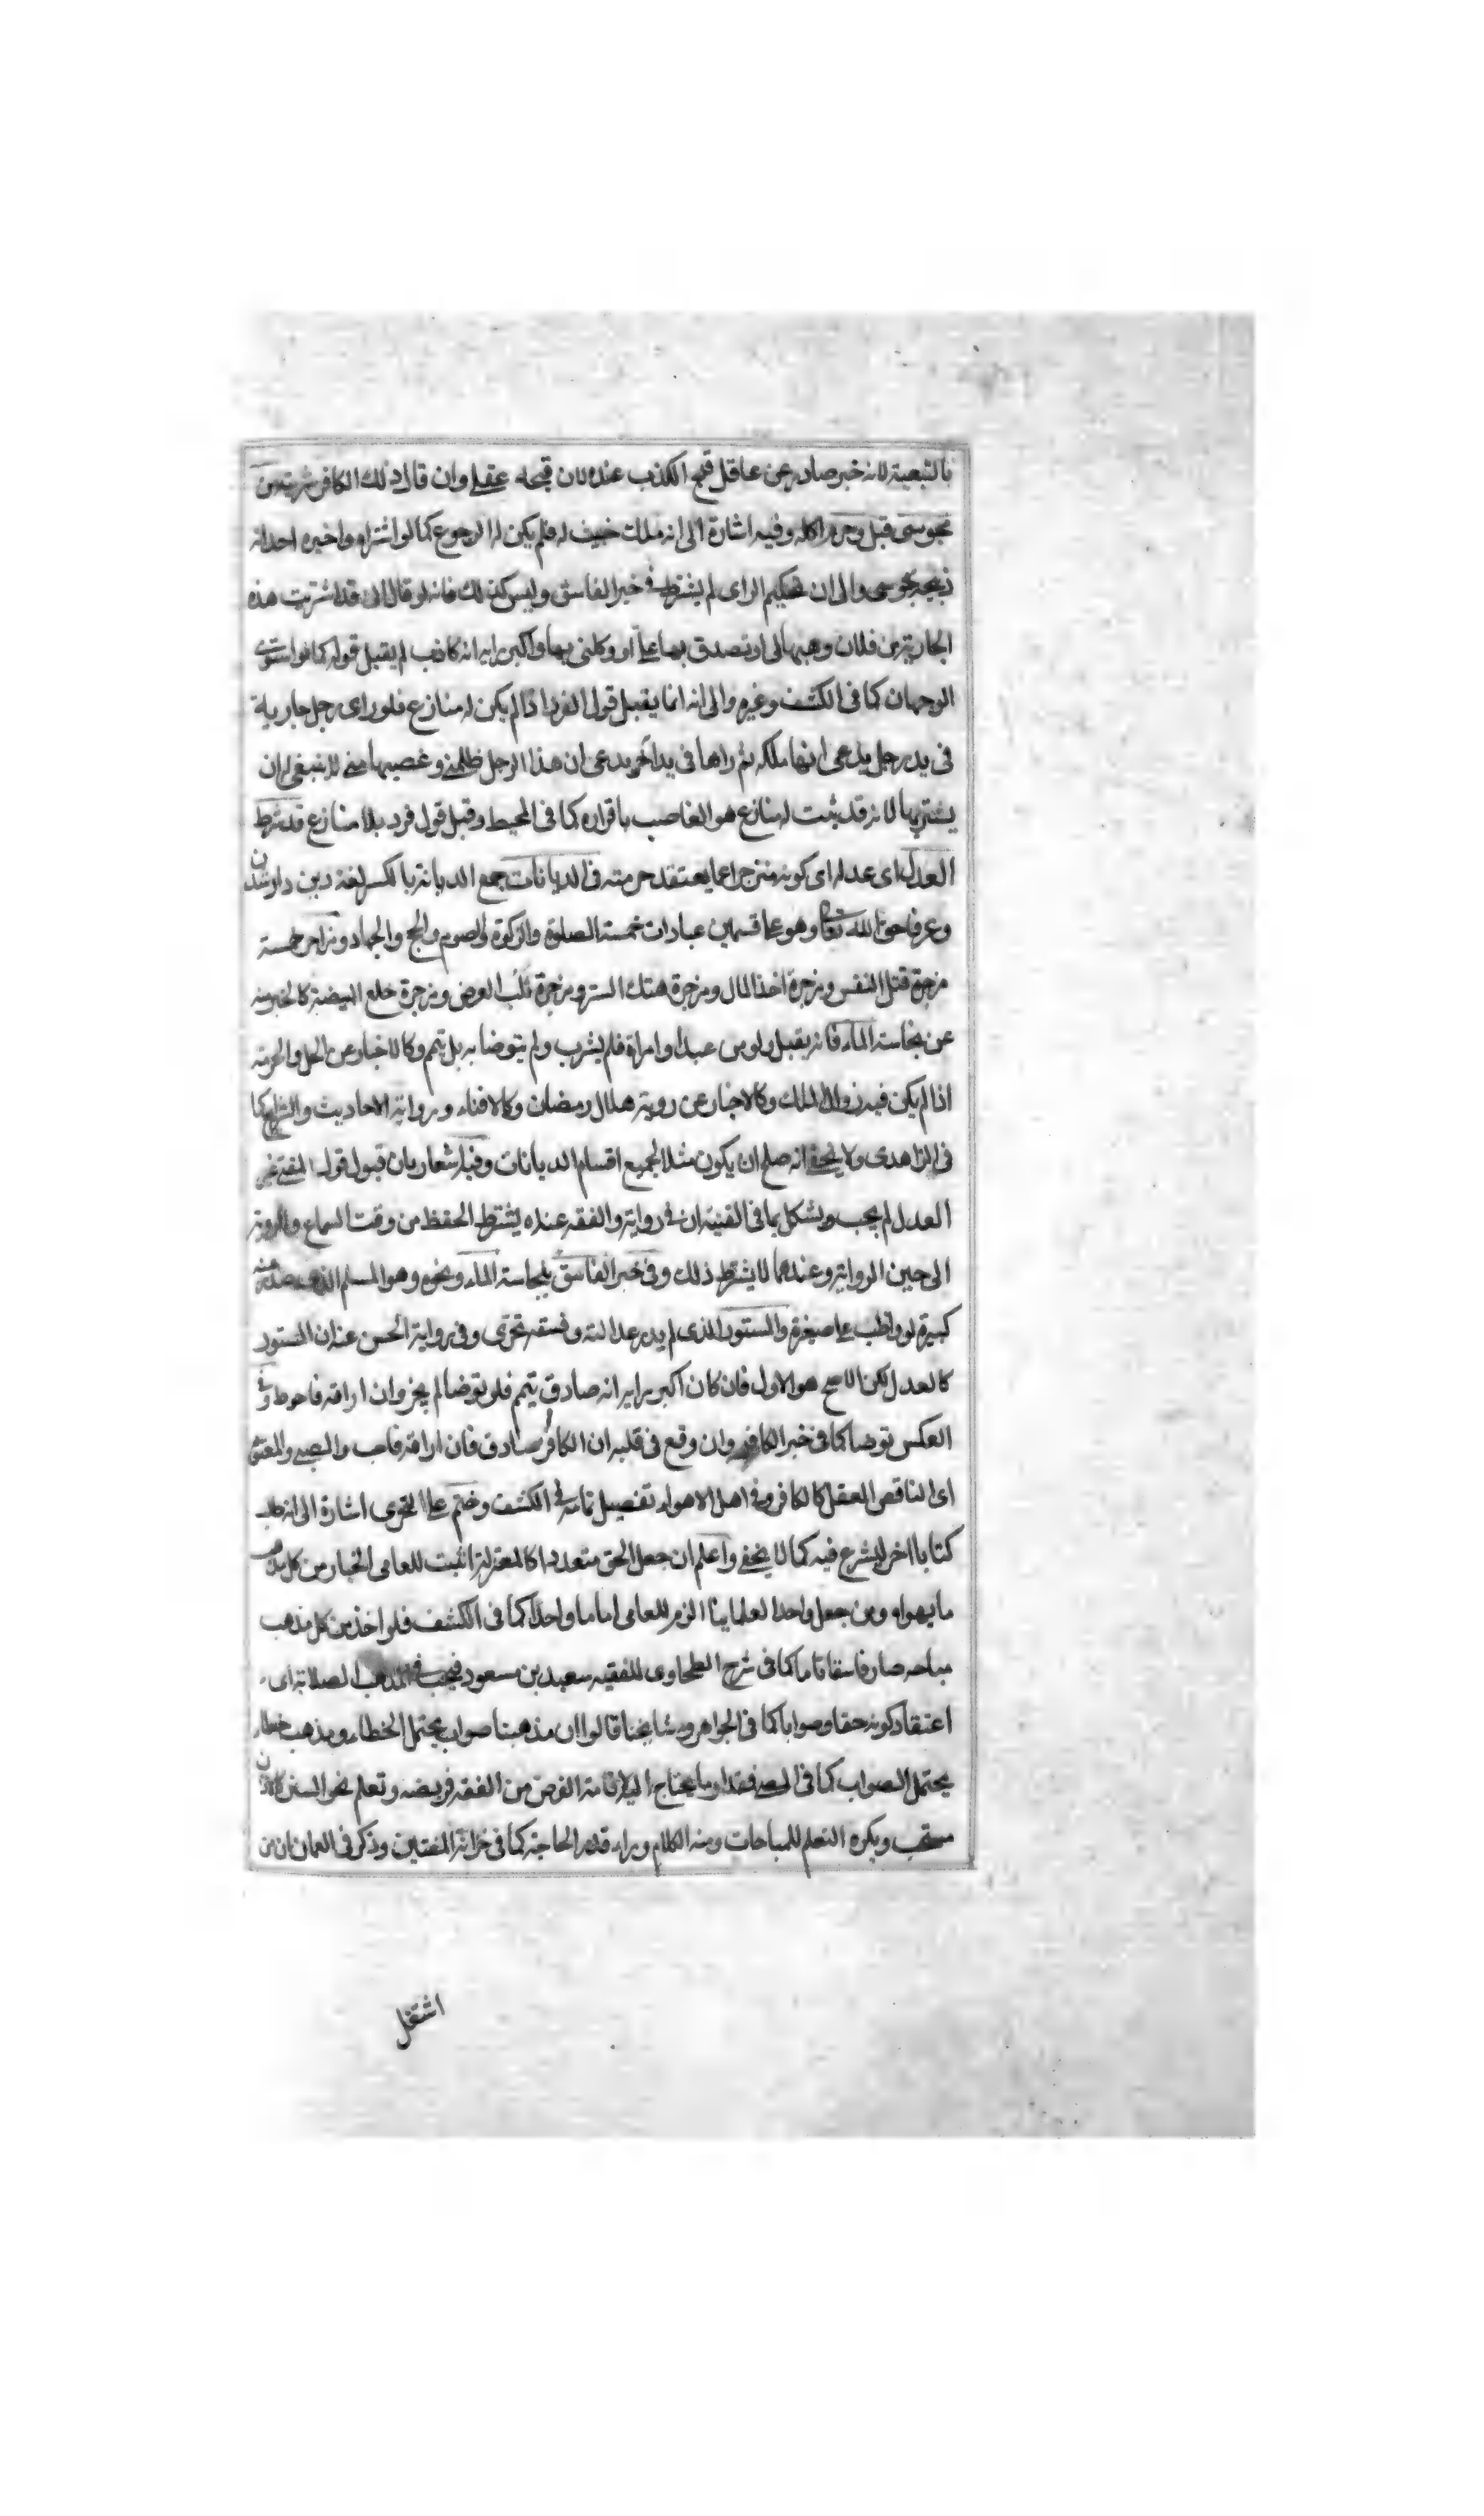 بالتبعية لانه خبر صادر عن عاقل قبح الكذب عنده لان قبحه عقلي وان قال ذلك الكافر شريته من
مجوسي قبل وحرم اكله وفيه اشارة الى انه ملك خبيث له فلم يكن له الرجوع كما لو اشتراه واخبره احد انه
ذبيحة مجوسى والى ان تحكيم الراى لم يشترط فى خبر الفاسق وليس كذلك فانه لو قال انى قد اشتريت هذه
الجارية من فلان وهبها لى او تصدق بها علىّ او وكلنى بها واكبر رايه انه كاذب لم يقبل قوله كما لو استوى
الوجهان كما فى الكشف وغيره والى انه انما يقبل قول الفرد اذا لم يكن له منازع فلو راى رجل جارية
فى يد رجل يدعى انها ملكه ثم راها فى يد آخر يدعى ان هذا الرجل ظلمنى وغصبها منى لا ينبغى ان
يشتريها لانه قد ثبت له منازع هو الغاصب باقراره كما فى المحيط وقبل قول فرد بلا منازع قد شرط
العدل اى عدله اى كونه منزجرا عما يعتقد حرمته فى الديانات جمع الديانة بالكسر لغة دين دار شدن
وعرفا حق الله تعالى وهو على قسمين عبادات خمسة الصلوة والزكوة والصوم والحج والجهاد ومزاجر خمسة
مزجرة قتل النفس ومزجرة اخذ المال ومزجرة هتك الستر ومزجرة ثلب العرض ومزجرة خلع البيضة كالخبر منه
عن نجاسة الماء فانه يقبل ولو من عبد او امراة فلم يشرب ولم يتوضا به بل تيمم وكالاخبار عن الحل والحرمة
اذا لم يكن فيه زوال الملك وكالاخبار عن روية هلال رمضان وكالافتاء ورواية الاحاديث والشرايع كما
فى الزاهدى ولا يخفى انه صلح ان يكون مثلا لجميع اقسام الديانات وفيه اشعار بان قبول قول المفتى غير
العدل لم يجب ويشكل بما فى القنية ان فى رواية والفقه عنده يشترط الحفظ من وقت السماع والروية
الى حين الرواية وعندهما لا يشترط ذلك وفى خبر الفاسق بنجاسة الماء ونحوه وهو المسلم الذى صدر منه
كبيرة لو واظب على صغيرة والمستور الذى لم يدر عدالته وفسقه تحرى وفى رواية الحسن عنه ان المستور
كالعدل لكن الاصح هو الاول فان كان اكبر رايه انه صادق تيمم فلو توضا لم يجز وان اراقه فاحوط وفى
العكس توضا كما فى خبر الكافر وان وقع فى قلبه ان الكافر صادق فان اراقه فاحب والصبى والمعتوه
اى الناقص العقل كالكافر وفى اهل الاهواء تفصيل تمامه فى الكشف وختم على التحرى اشارة الى انه طلب
كتابا اخر للشرع فيه كما لا يخفى واعلم ان جعل الحق متعددا كالمعتزلة اثبت للعامى الخيار من كل مذهب
ما يهواه ومن جعل واحدا لعلمائنا الزم للعامى اماما واحدا كما فى الكشف فلو اخذ من كل مذهب
مباحه صار فاسقا تاما كما فى شرح الطحاوى للفقيه سعيد بن مسعود فيجب فى المذهب الصلابة اى
اعتقاد كونه حقا وصوابا كما فى الجواهر ومشايخنا قالوا ان مذهبنا صواب يحتمل الخطاء ومذهب خطاء
يحتمل الصواب كما فى المصفى فتعلم ما يحتاج اليه لاقامة الفرض من الفقه فريضة وتعلم نحو السنن
مستحب ويكره التعلم للمباهات ومنه الكلام وراء قدر الحاجة كما فى خزانة المفتين وذكر فى العمان ان من
اشتغل